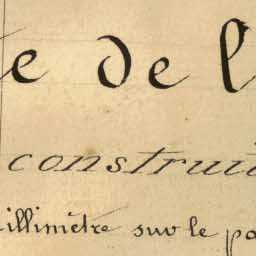 e de l
construit
illimètre sur le pa